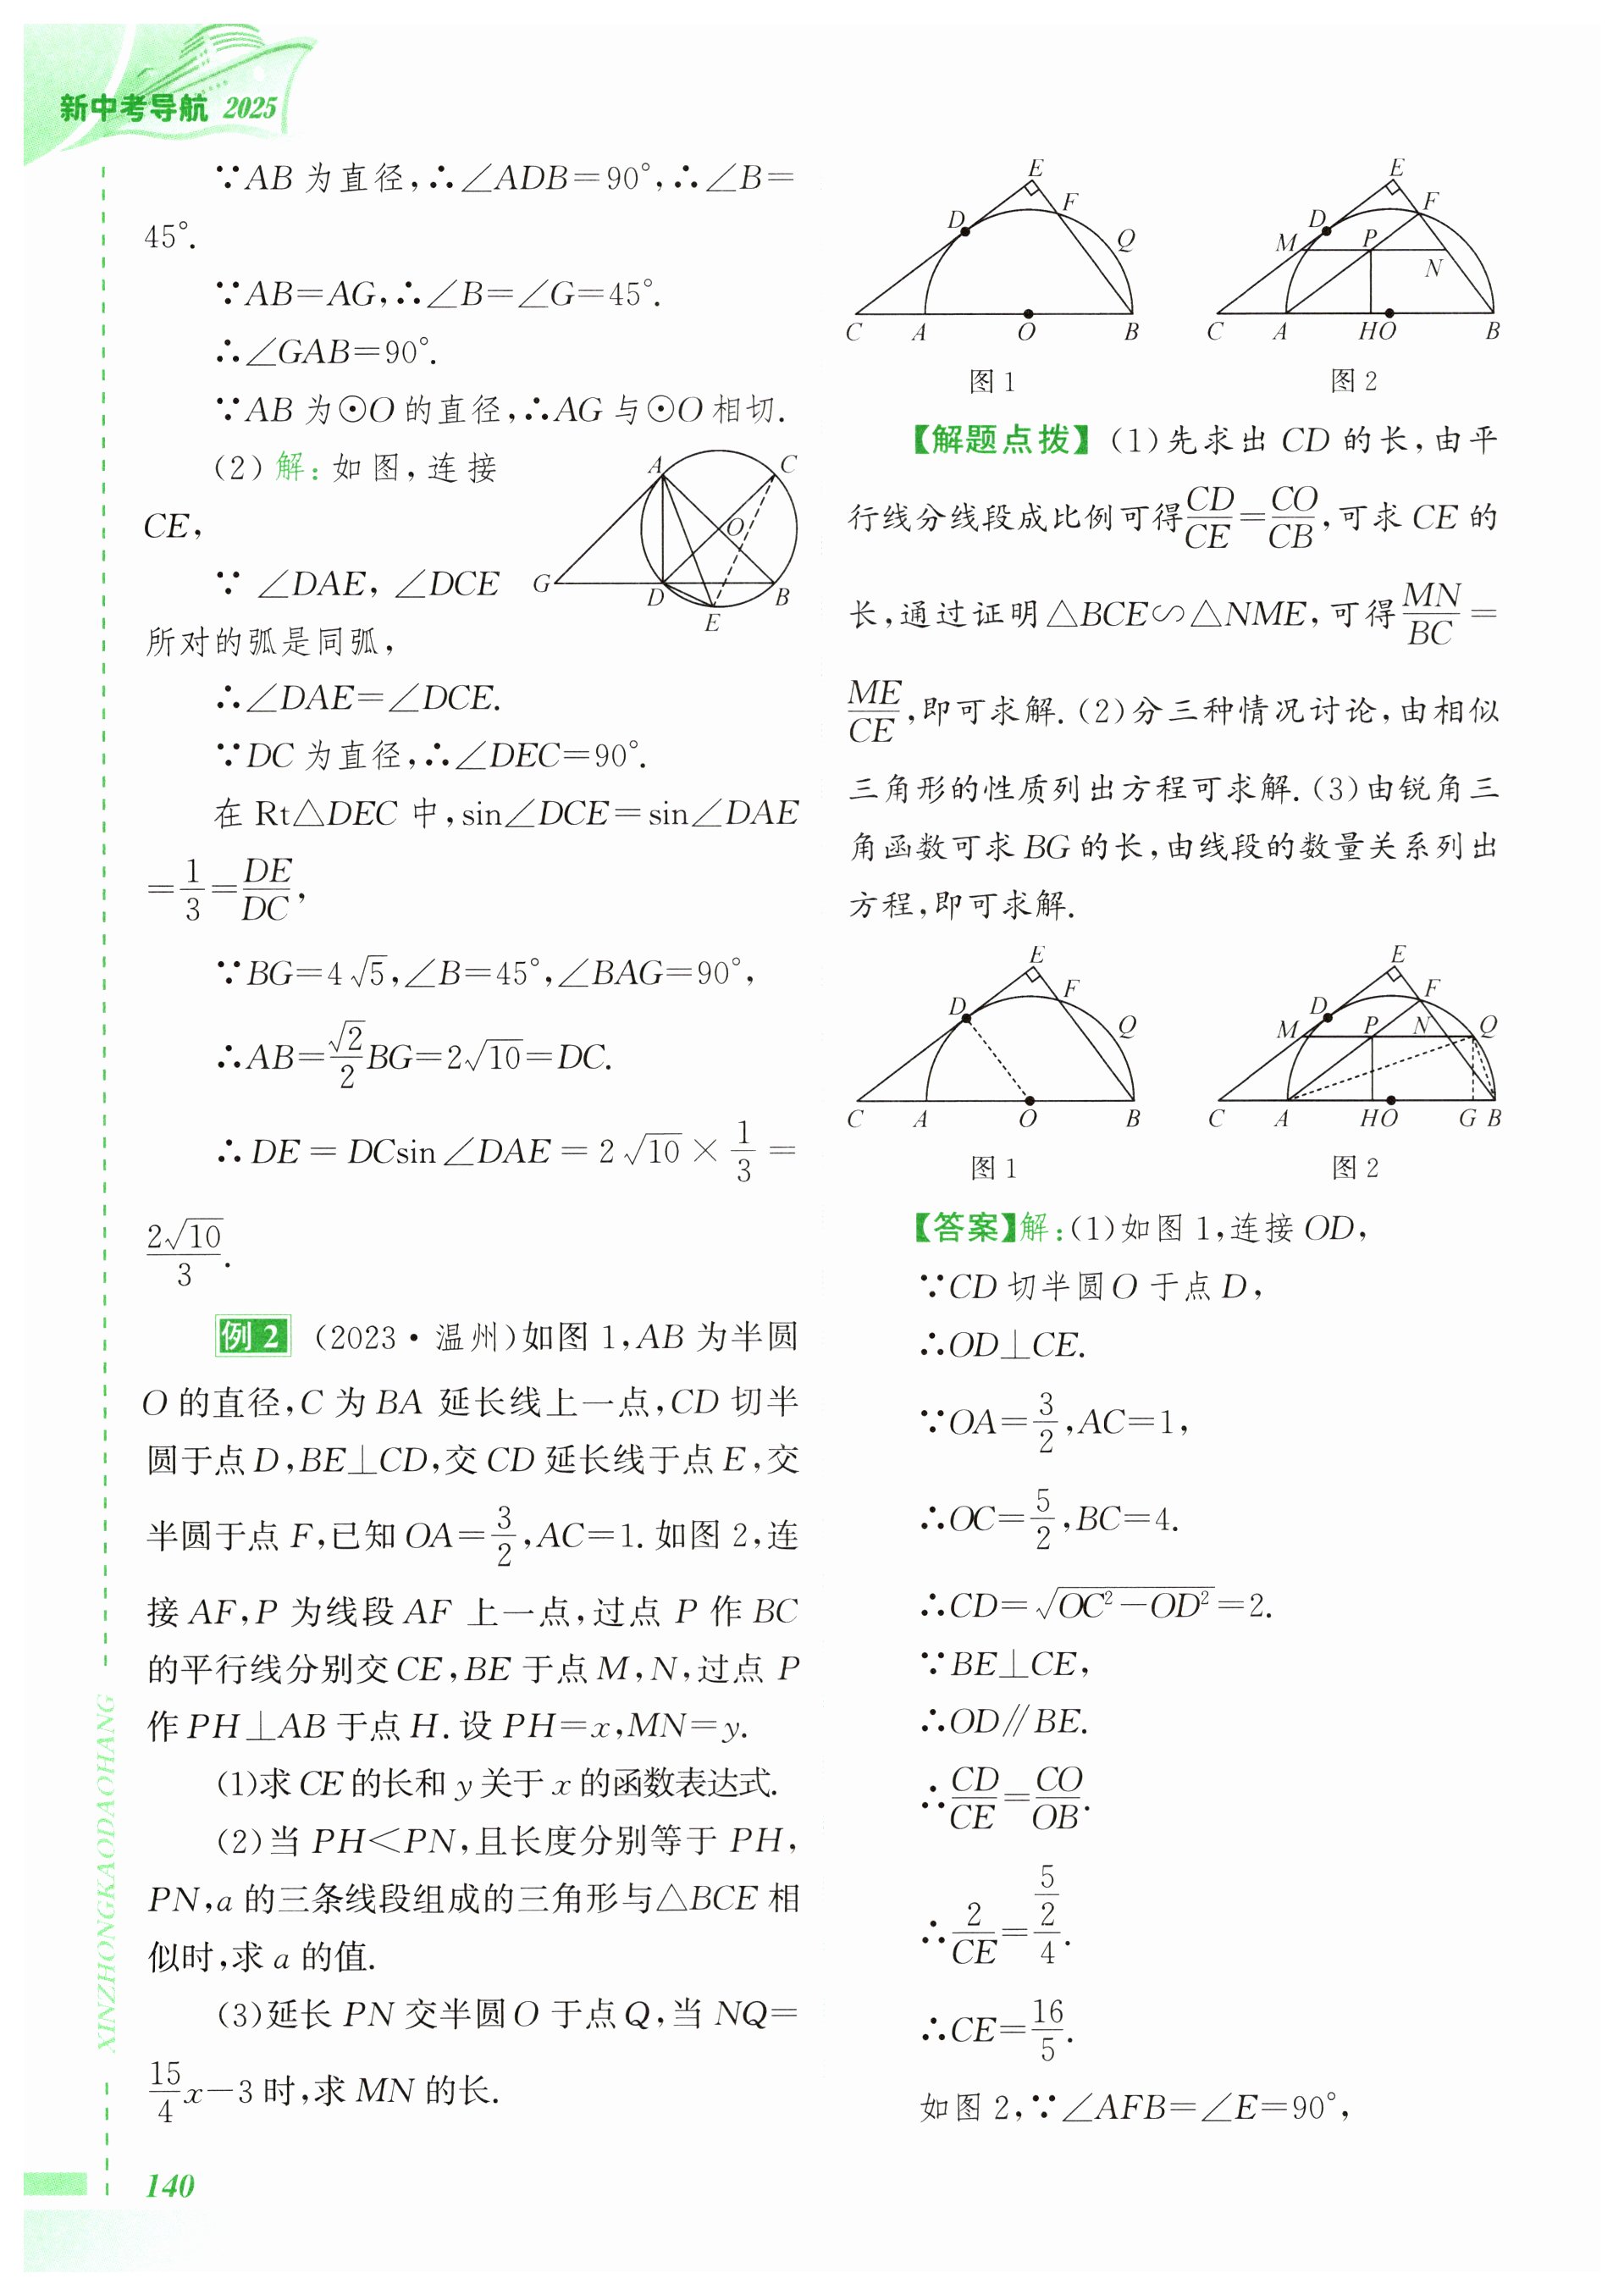 新中考导航 2025
∵AB 为直径,∴∠ADB=90°,∴∠B=
45°.
∵AB=AG,∴∠B=∠G=45°.
∴∠GAB=90°.
∵AB 为⊙O 的直径,∴AG 与⊙O 相切.
(2) 解:如图,连接
CE,
∵ ∠DAE, ∠DCE
所对的弧是同弧,
A
C
O
G
D
B
E
∴∠DAE=∠DCE.
∵DC 为直径,∴∠DEC=90°.
在 Rt△DEC 中,sin∠DCE=sin∠DAE
=1/3=DE/DC,
∵BG=4√5,∠B=45°,∠BAG=90°,
∴AB=√2/2 BG=2√10=DC.
∴DE=DCsin∠DAE=2√10×1/3=
2√10/3.
例 2 (2023·温州)如图 1,AB 为半圆
O 的直径,C 为 BA 延长线上一点,CD 切半
圆于点 D,BE⊥CD,交 CD 延长线于点 E,交
半圆于点 F,已知 OA=3/2,AC=1. 如图 2,连
接 AF,P 为线段 AF 上一点,过点 P 作 BC
的平行线分别交 CE,BE 于点 M,N,过点 P
作 PH⊥AB 于点 H. 设 PH=x,MN=y.
(1)求 CE 的长和 y 关于 x 的函数表达式.
(2)当 PH<PN,且长度分别等于 PH,
PN,a 的三条线段组成的三角形与△BCE 相
似时,求 a 的值.
(3)延长 PN 交半圆 O 于点 Q,当 NQ=
15/4 x-3 时,求 MN 的长.
E
D
F
Q
C A O B
图 1
E
D
F
M
P
N
C A HO B
图 2
【解题点拨】(1)先求出 CD 的长,由平
行线分线段成比例可得CD/CE=CO/CB,可求 CE 的
长,通过证明△BCE∽△NME,可得MN/BC=
ME/CE,即可求解. (2)分三种情况讨论,由相似
三角形的性质列出方程可求解. (3)由锐角三
角函数可求 BG 的长,由线段的数量关系列出
方程,即可求解.
E
D
F
Q
C A O B
图 1
E
D
F
M P N Q
C A HO G B
图 2
【答案】解:(1)如图 1,连接 OD,
∵CD 切半圆 O 于点 D,
∴OD⊥CE.
∵OA=3/2,AC=1,
∴OC=5/2,BC=4.
∴CD=√(OC²-OD²)=2.
∵BE⊥CE,
∴OD∥BE.
∴CD/CE=CO/OB.
∴2/CE=(5/2)/4.
∴CE=16/5.
如图 2,∵∠AFB=∠E=90°,
XINZHONGKAODAOHANG
140